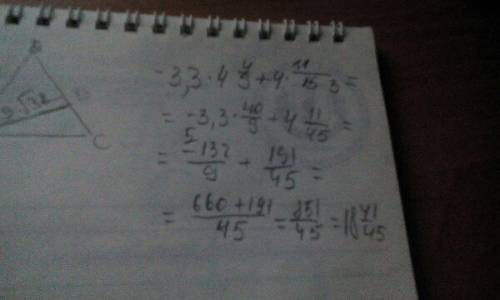 B
D
C
-3,3 · 4 4/9 + 4 · 11/15 3 =
= -3,3 · 40/9 + 4 11/45 =
5
= -132/9 + 191/45 =
= 660+191/45 = 851/45 = 18 41/45